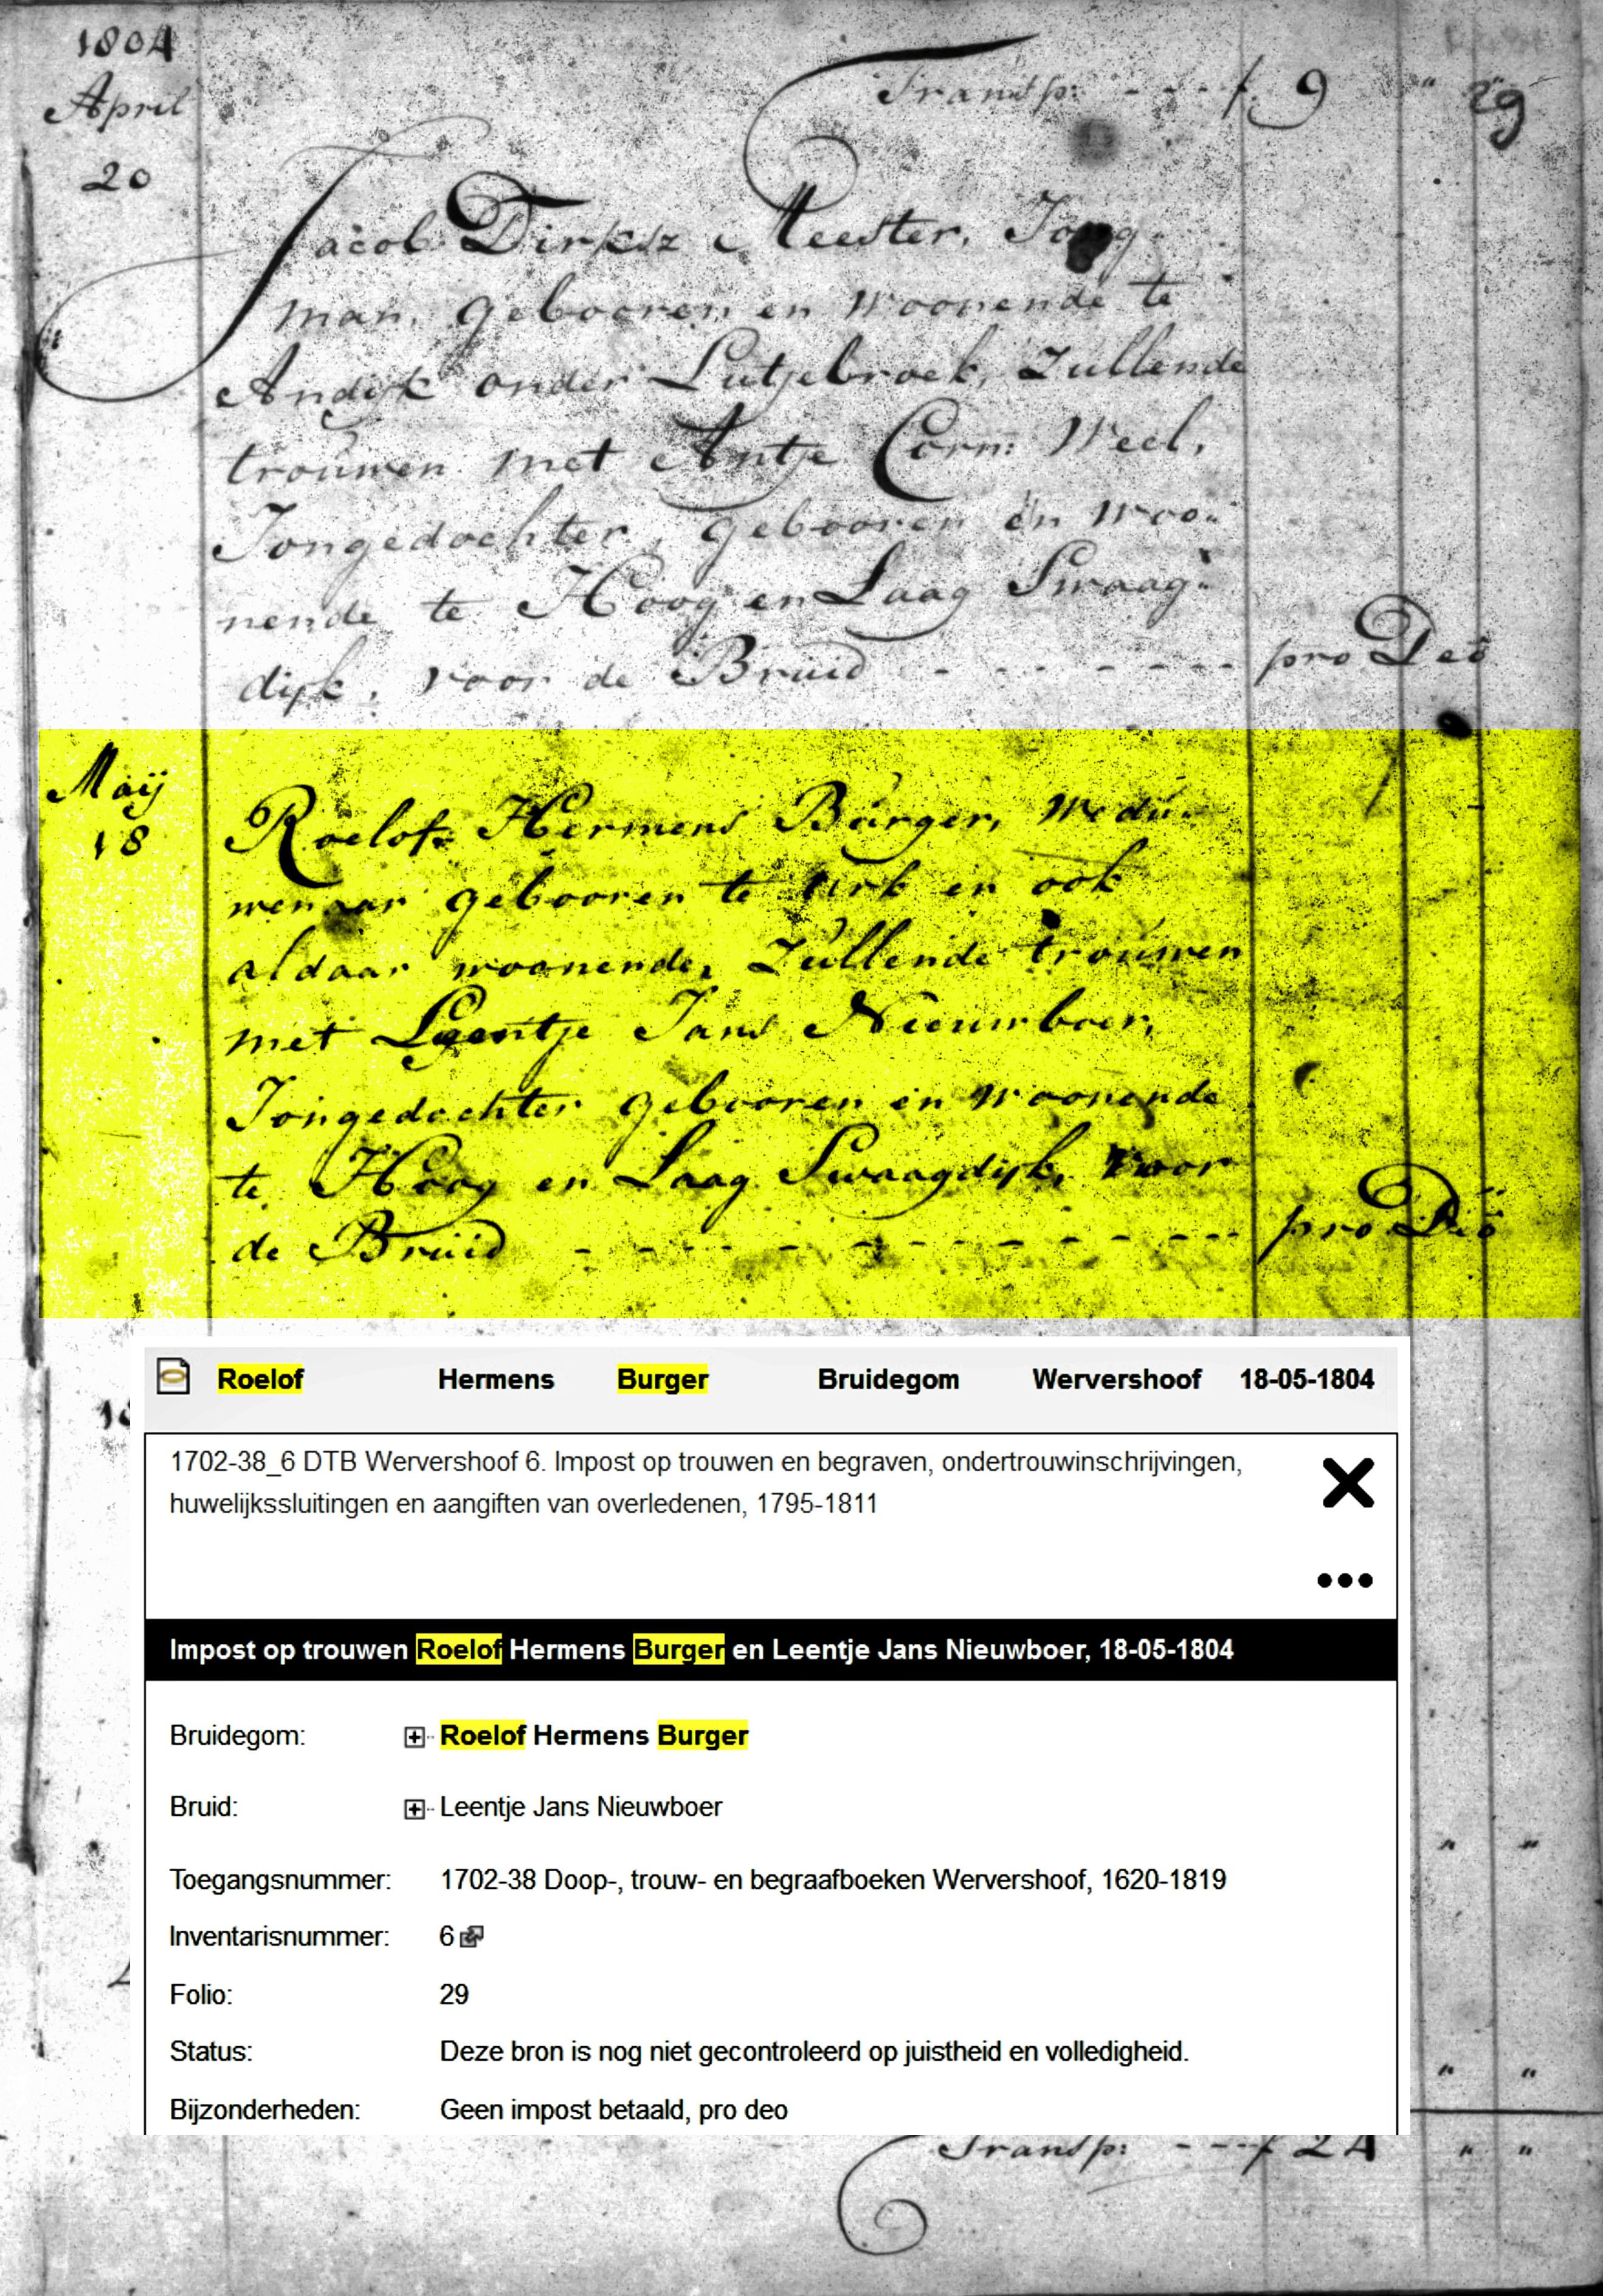 1804
April
20
Transp: - - - - f 9 " 29
Jacob Dirksz Meester, Jong
man, gebooren en woonende te
Andijk onder Lutjebroek, Zullende
trouwen met Antje Corn: Weel,
Jongedochter, gebooren en woo:
nende te Hoog en Laag Swaag:
dijk, voor de Bruid - - - - - - - pro Deo
Maij
18
Roelof Hermens Burger, Wedu:
wenaar gebooren te Urk en ook
aldaar woonende, Zullende trouwen
met Leentje Jans Nieuwboer,
Jongedochter gebooren en woonende
te Hoog en Laag Swaagdijk, voor
de Bruid - - - - - - - - - - - - pro Deo
Roelof Hermens Burger Bruidegom Wervershoof 18-05-1804
1702-38_6 DTB Wervershoof 6. Impost op trouwen en begraven, ondertrouwinschrijvingen,
huwelijkssluitingen en aangiften van overledenen, 1795-1811
Impost op trouwen Roelof Hermens Burger en Leentje Jans Nieuwboer, 18-05-1804
Bruidegom: Roelof Hermens Burger
Bruid: Leentje Jans Nieuwboer
Toegangsnummer: 1702-38 Doop-, trouw- en begraafboeken Wervershoof, 1620-1819
Inventarisnummer: 6
Folio: 29
Status: Deze bron is nog niet gecontroleerd op juistheid en volledigheid.
Bijzonderheden: Geen impost betaald, pro deo
" "
" "
Transp: - - - f 24 " "